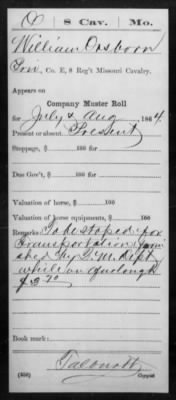 O | 8 Cav. | Mo.
William Orsborn
Pvt., Co. E, 8 Reg't Missouri Cavalry.
Appears on
Company Muster Roll
for July & Aug, 1864.
Present or absent Present
Stoppage, $ 100 for
Due Gov't, $ 100 for
Valuation of horse, $ 100
Valuation of horse equipments, $ 100
Remarks: To be stoped for
transportation furni
shed by Q. M. Dept
while on furlough
Book mark:
(358) Copyist.